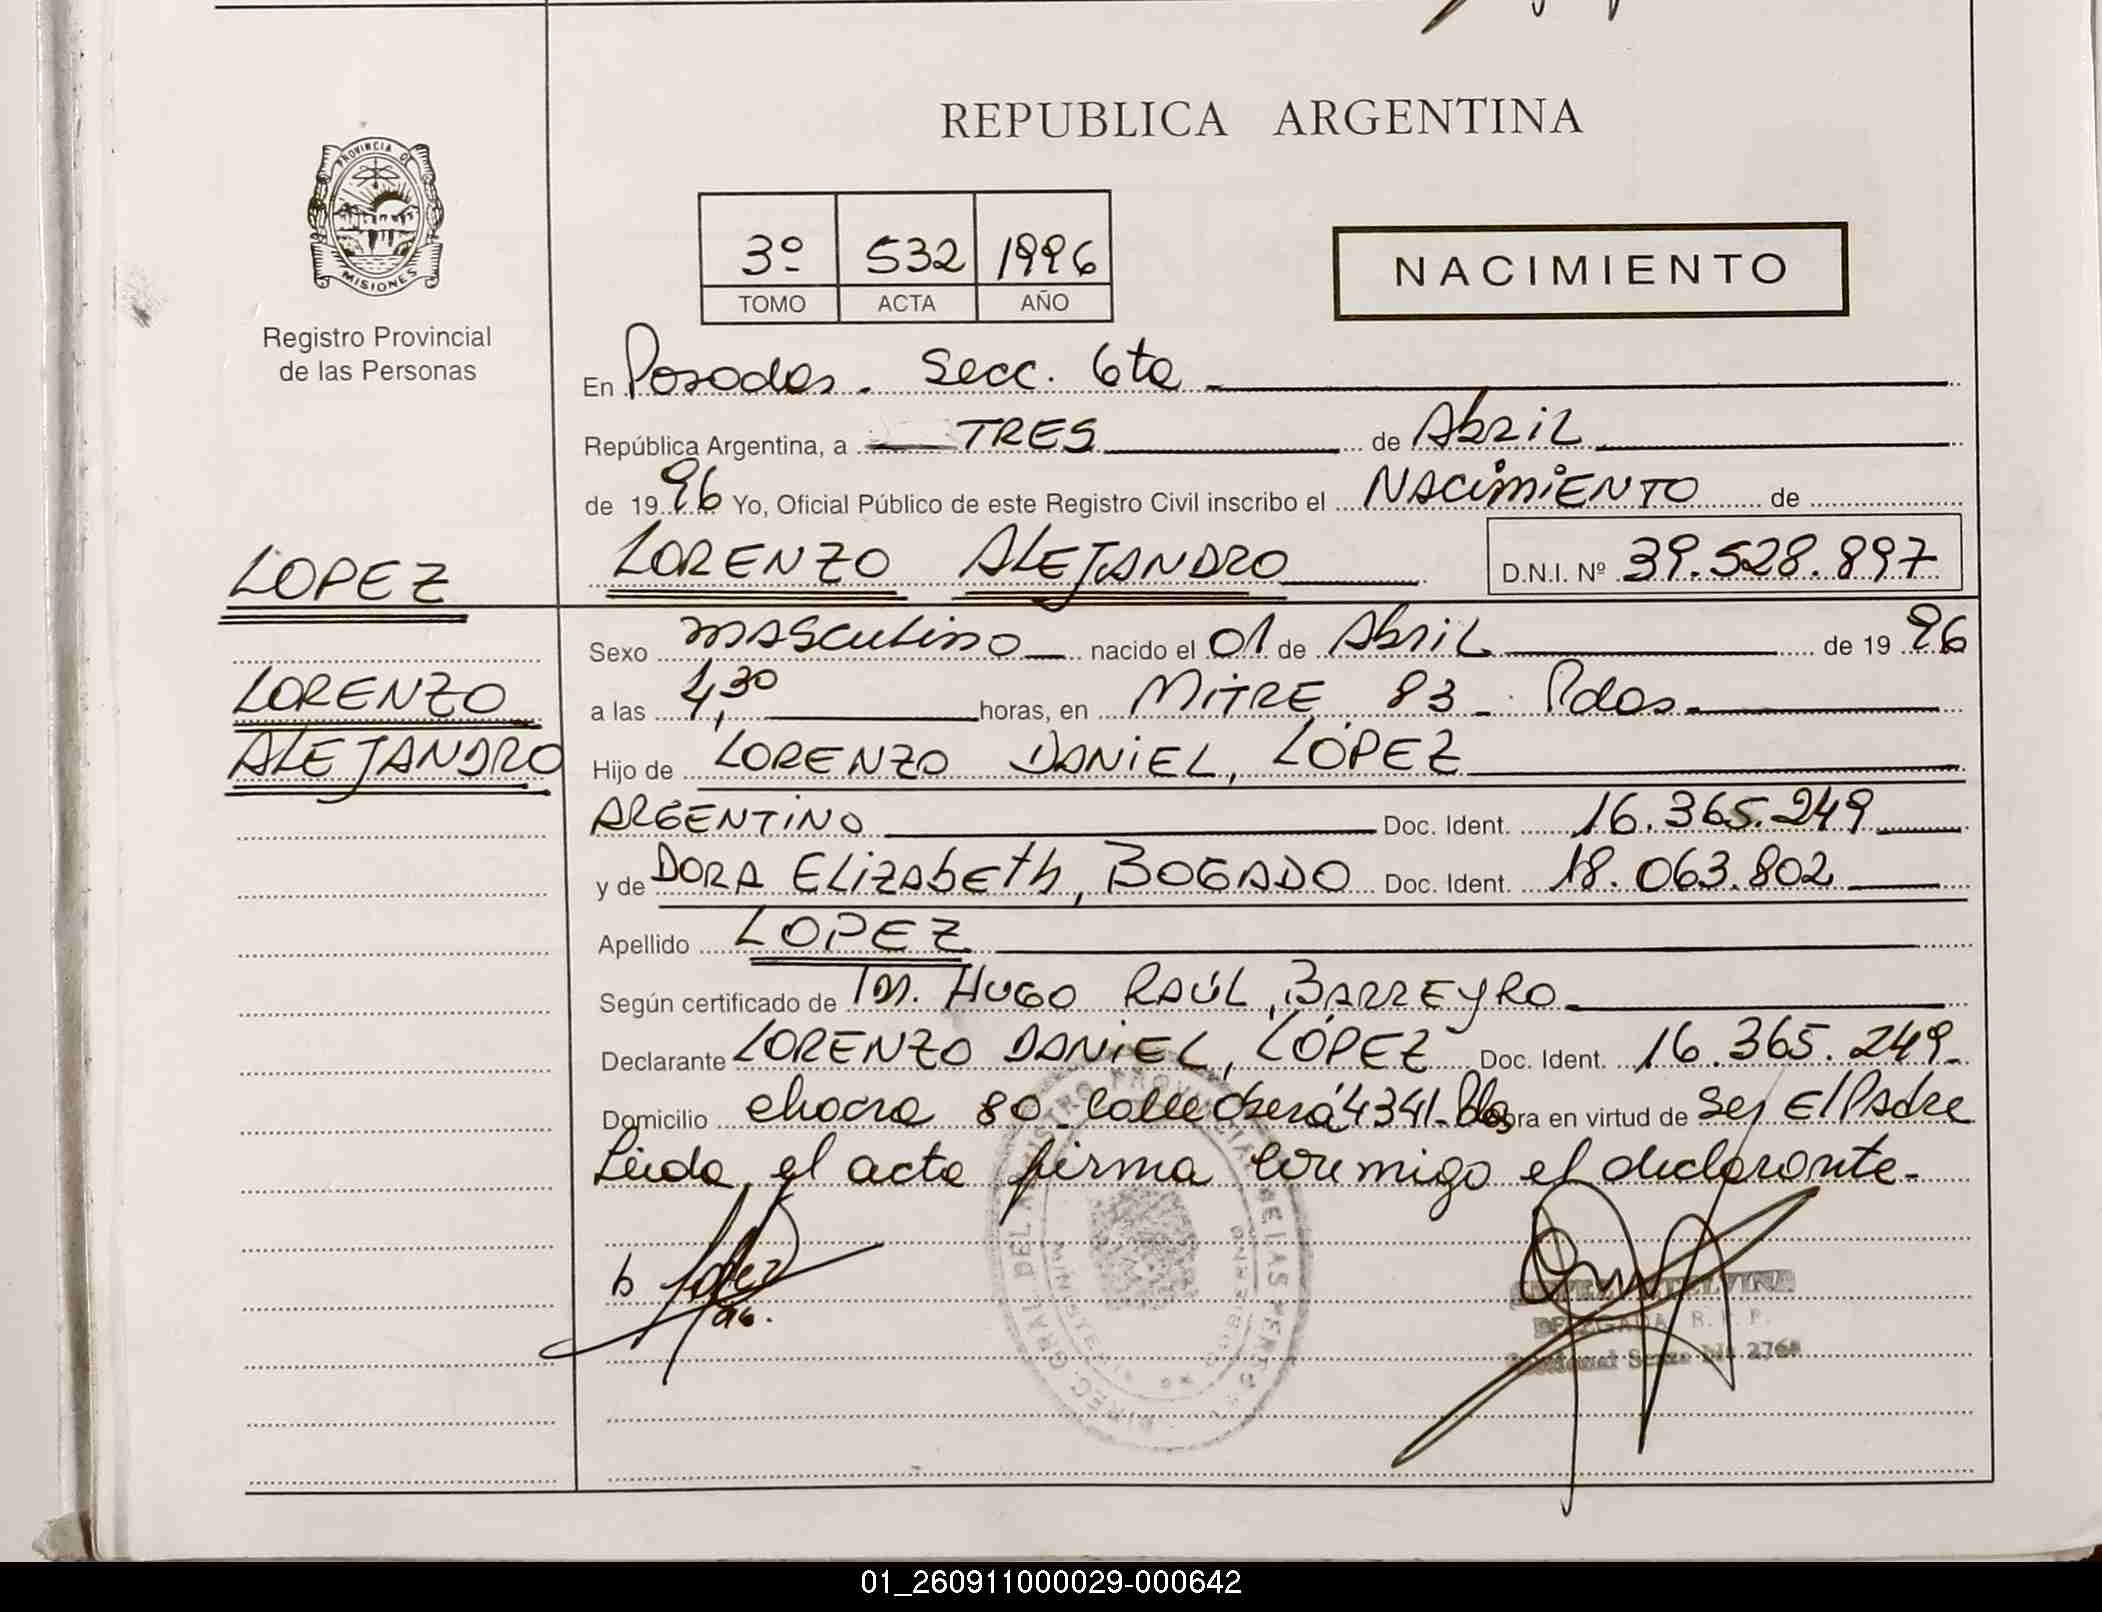 REPUBLICA ARGENTINA
PROVINCIA DE
MISIONES
Registro Provincial
de las Personas
3º 532 1996
TOMO ACTA AÑO
NACIMIENTO
En Posadas. Secc. 6ta
República Argentina, a TRES de Abril
de 1996 Yo, Oficial Público de este Registro Civil inscribo el NACIMIENTO de
LORENZO ALEJANDRO D.N.I. Nº 39.528.897
LOPEZ
LORENZO
ALEJANDRO
Sexo masculino nacido el 01 de Abril de 1996
a las 4,30 horas, en MITRE 83 - Pdas.
Hijo de LORENZO DANIEL, LÓPEZ
ARGENTINO Doc. Ident. 16.365.249
y de DORA ELIZABETH, BOGADO Doc. Ident. 18.063.802
Apellido LOPEZ
Según certificado de HUGO RAÚL, BARREYRO
Declarante LORENZO DANIEL, LÓPEZ Doc. Ident. 16.365.249
Domicilio chacra 80 Calle 4341 - Pdas obra en virtud de ser El Padre
Leída el acta firma conmigo el declarante.
DELEGADA R. P. P.
01_260911000029-000642